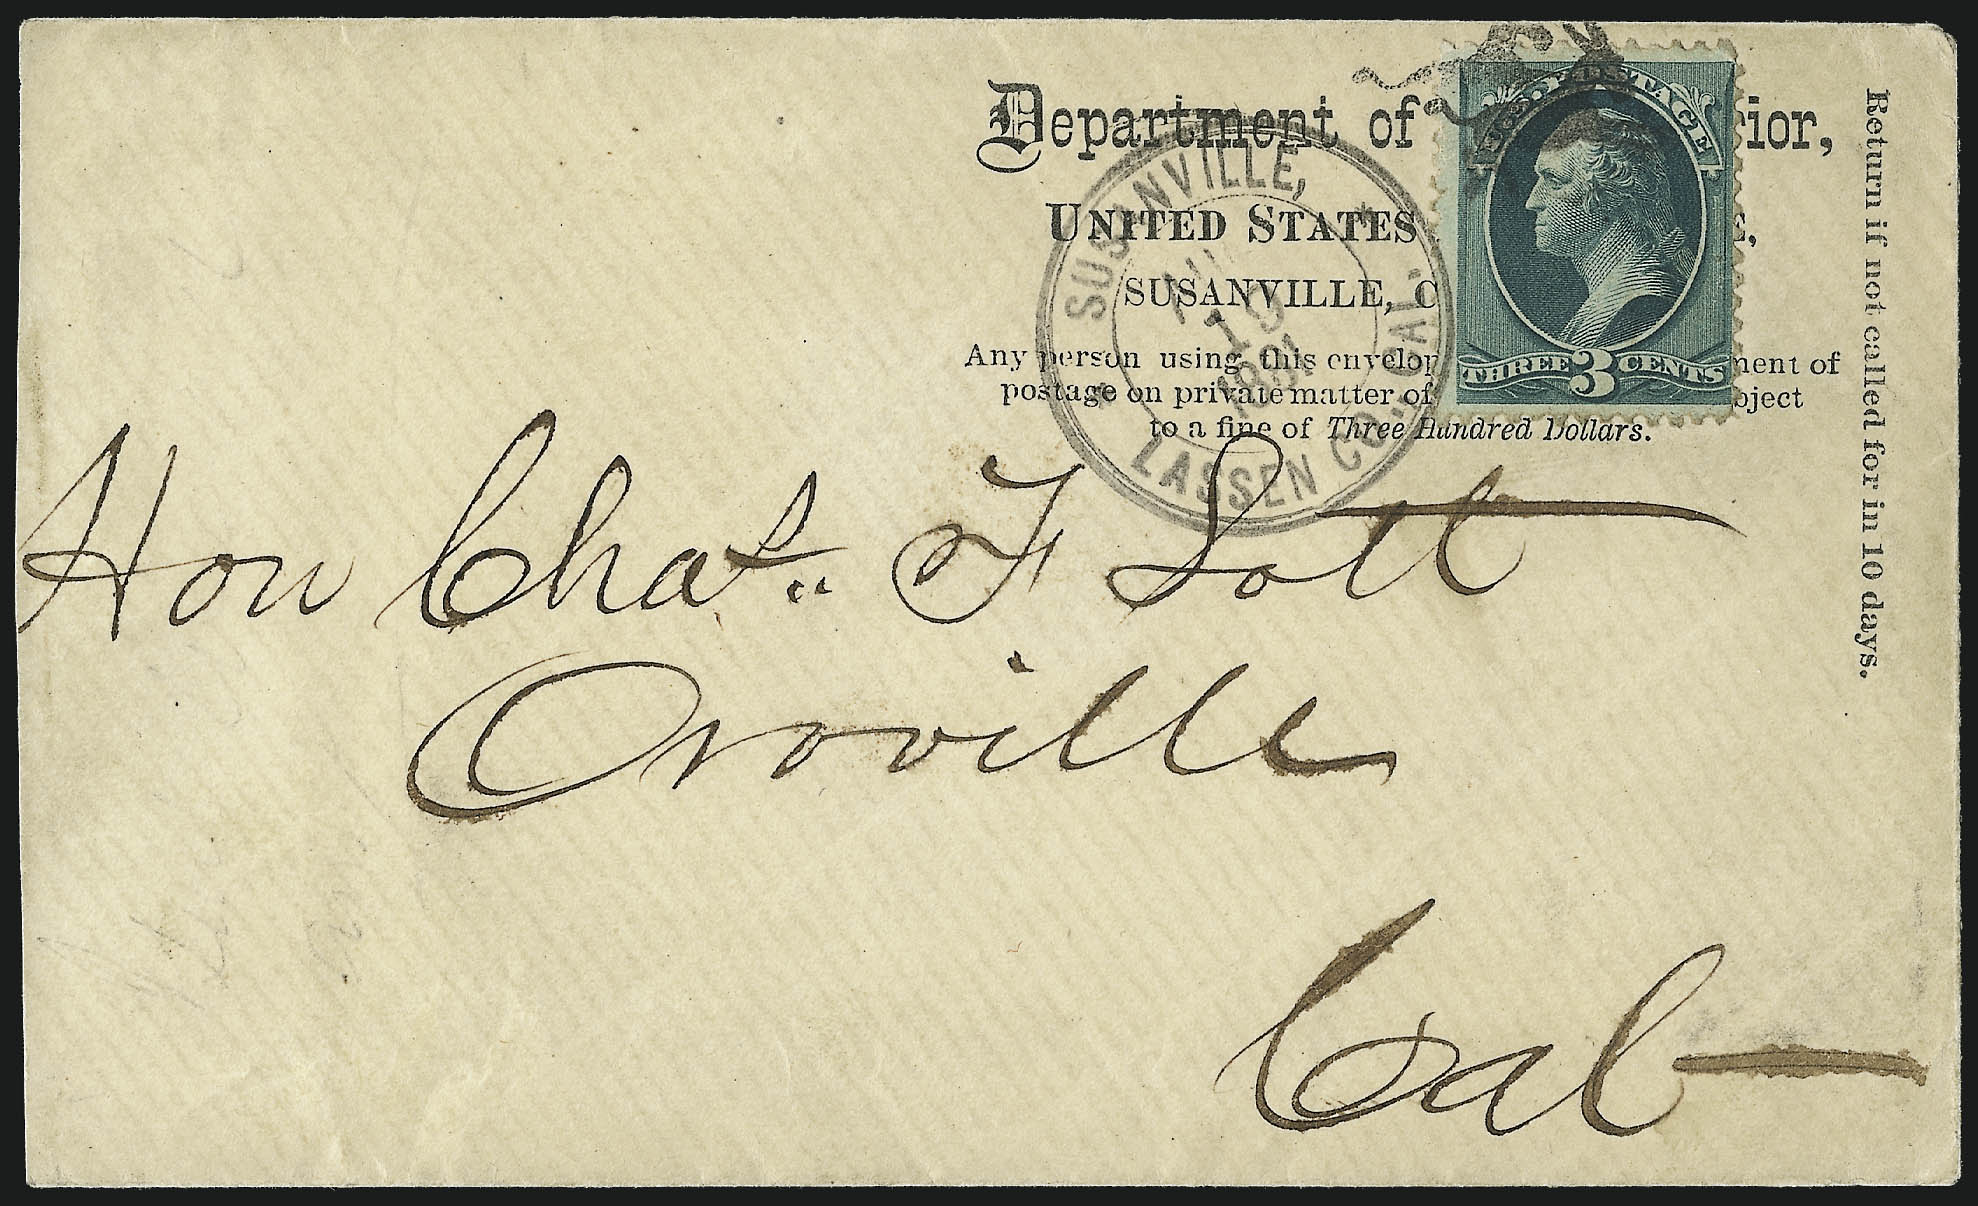 Department of ior,
UNITED STATES E,
SUSANVILLE, C
Any person using this envelop ment of
postage on private matter of bject
to a fine of Three Hundred Dollars.
Return if not called for in 10 days.
SUSANVILLE,
19
1881
LASSEN CO., CAL.
U.S. POSTAGE
THREE 3 CENTS
Hon Chas. F Lott
Oroville
Cal